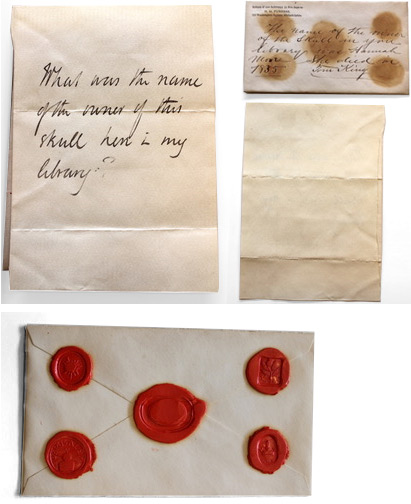 What was the name
of the owner of this
skull here in my
library?
The name of the owner
of the Skull in your
library was Hannah
More she died in
1835
Tom King